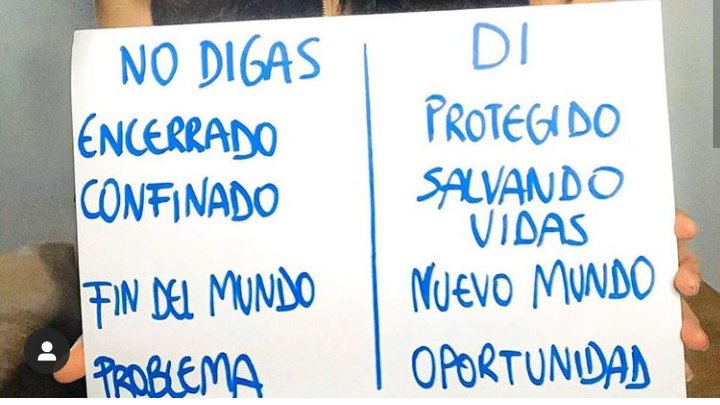 NO DIGAS
ENCERRADO
CONFINADO
FIN DEL MUNDO
PROBLEMA
DI
PROTEGIDO
SALVANDO
VIDAS
NUEVO MUNDO
OPORTUNIDAD